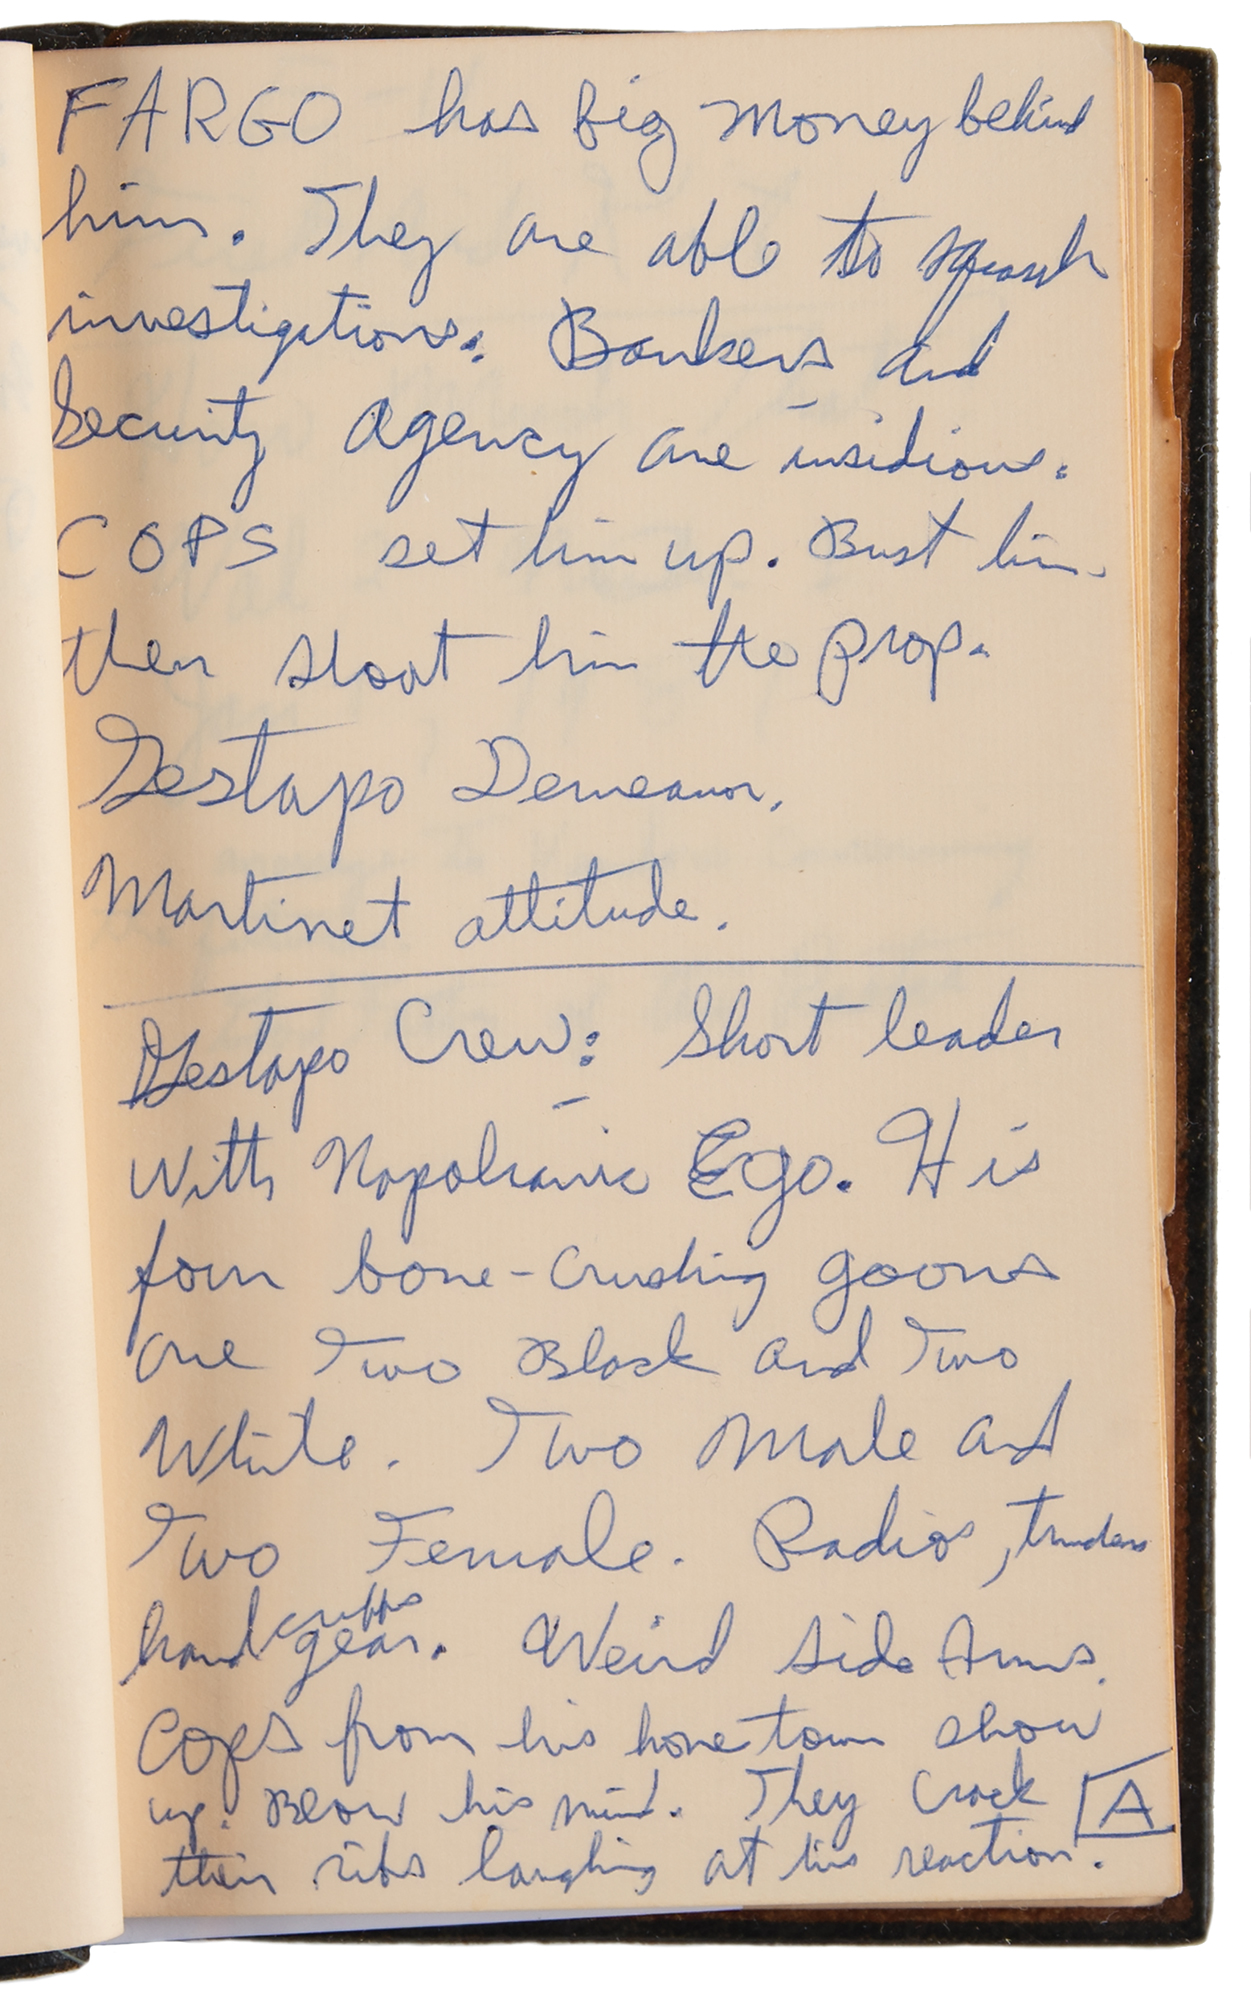 FARGO has big money behind
him. They are able to squash
investigations. Bankers and
Security Agency are insidious.
COPS set him up. Bust him
then shoot him the prop.
Gestapo Demeanor.
Martinet attitude.
Gestapo Crew: Short leader
with Napoleanic Ego. His
four bone-crushing goons
are two Black and two
White. Two Male and
Two Female. Radios,
hand cuffs
gear. Weird side Arms.
Cops from his home town show
up. Blow his mind. They crack
their ribs laughing at his reaction.
A